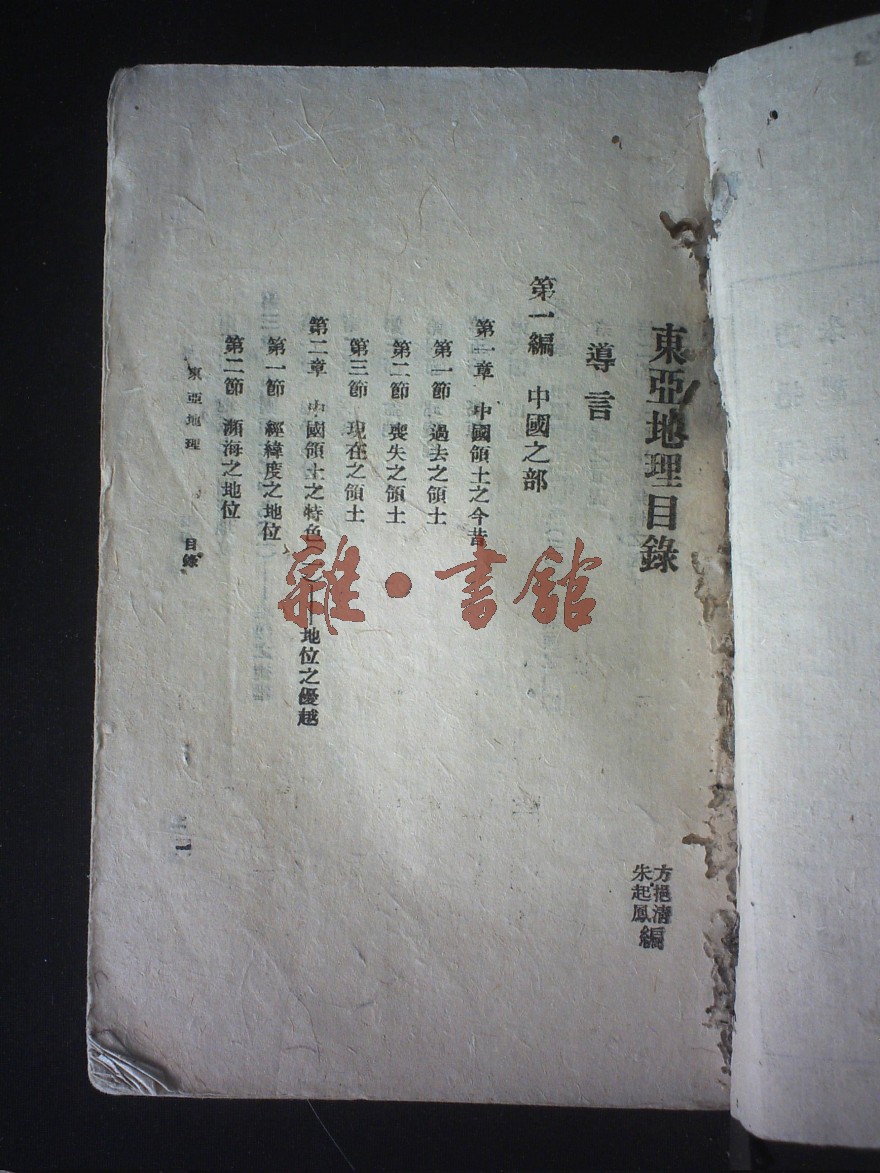 東亞地理目錄
方挹清
朱起鳳
編
導言
第一編 中國之部
第一章 中國領土之今昔
第一節 過去之領土
第二節 喪失之領土
第三節 現在之領土
第二章 中國領土之特色(一)——地位之優越
第一節 經緯度之地位
第二節 瀕海之地位
東亞地理 目錄 一
雜·書館